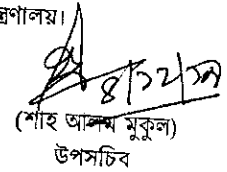 ন্ত্রণালয়।
৪/১২/১৯
(শাহ আলম মুকুল)
উপসচিব